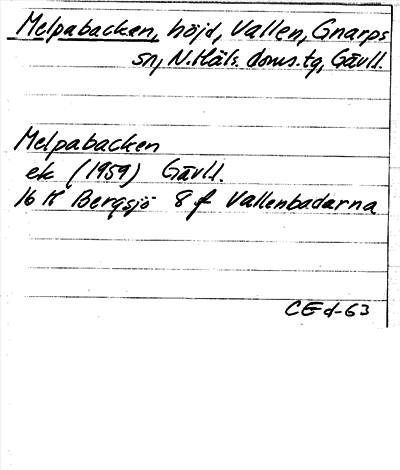 Melpabacken, höjd, Vallen, Gnarps
sn, N.Häls. doms.tg, Gävll.
Melpabacken
ek (1959) Gävll.
16 H Bergsjö 8 f Vallenbadarna
CEd-63